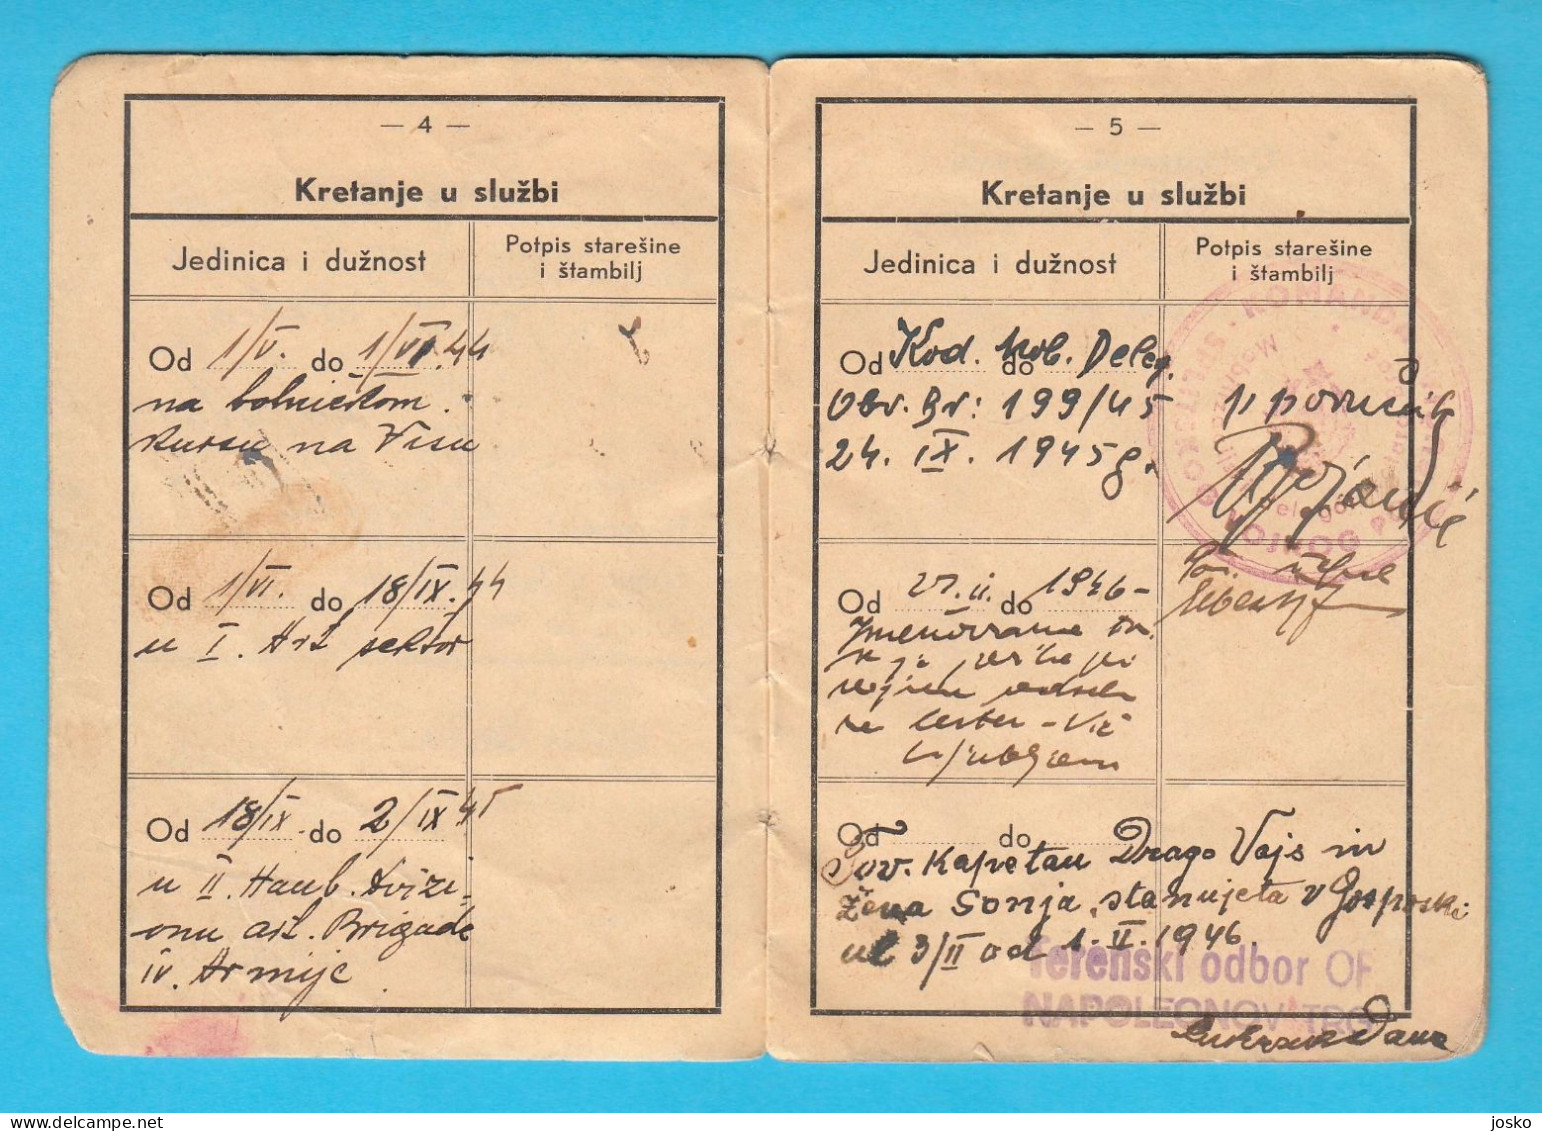 — 4 —
Kretanje u službi
Jedinica i dužnost
Potpis starešine
i štambilj
Od 1/V. do 1/VI.44
na bolničkom
kursu na Visu
Od 1/VI. do 18/IX.44
u I. Art sektor
Od 18/IX do 2/IX 45
u II. Haub. divizi-
onu art. Brigade
IV. Armije
— 5 —
Kretanje u službi
Jedinica i dužnost
Potpis starešine
i štambilj
Od Kod. Mob. Deleg. do
Obr. Br: 199/45
24. IX. 1945g.
p poručnik
KOMANDA
SPLITSKOG VOJNOG
Od 27.II. do 1946-
Imenovane
Vič
Ljubljani
Od do
Tov. Kapetan Drago Vajs in
žena Sonja, stanujeta v Gosposki
ul 3/II od 1. II. 1946.
Terenski odbor OF
NAPOLEONOV TRG